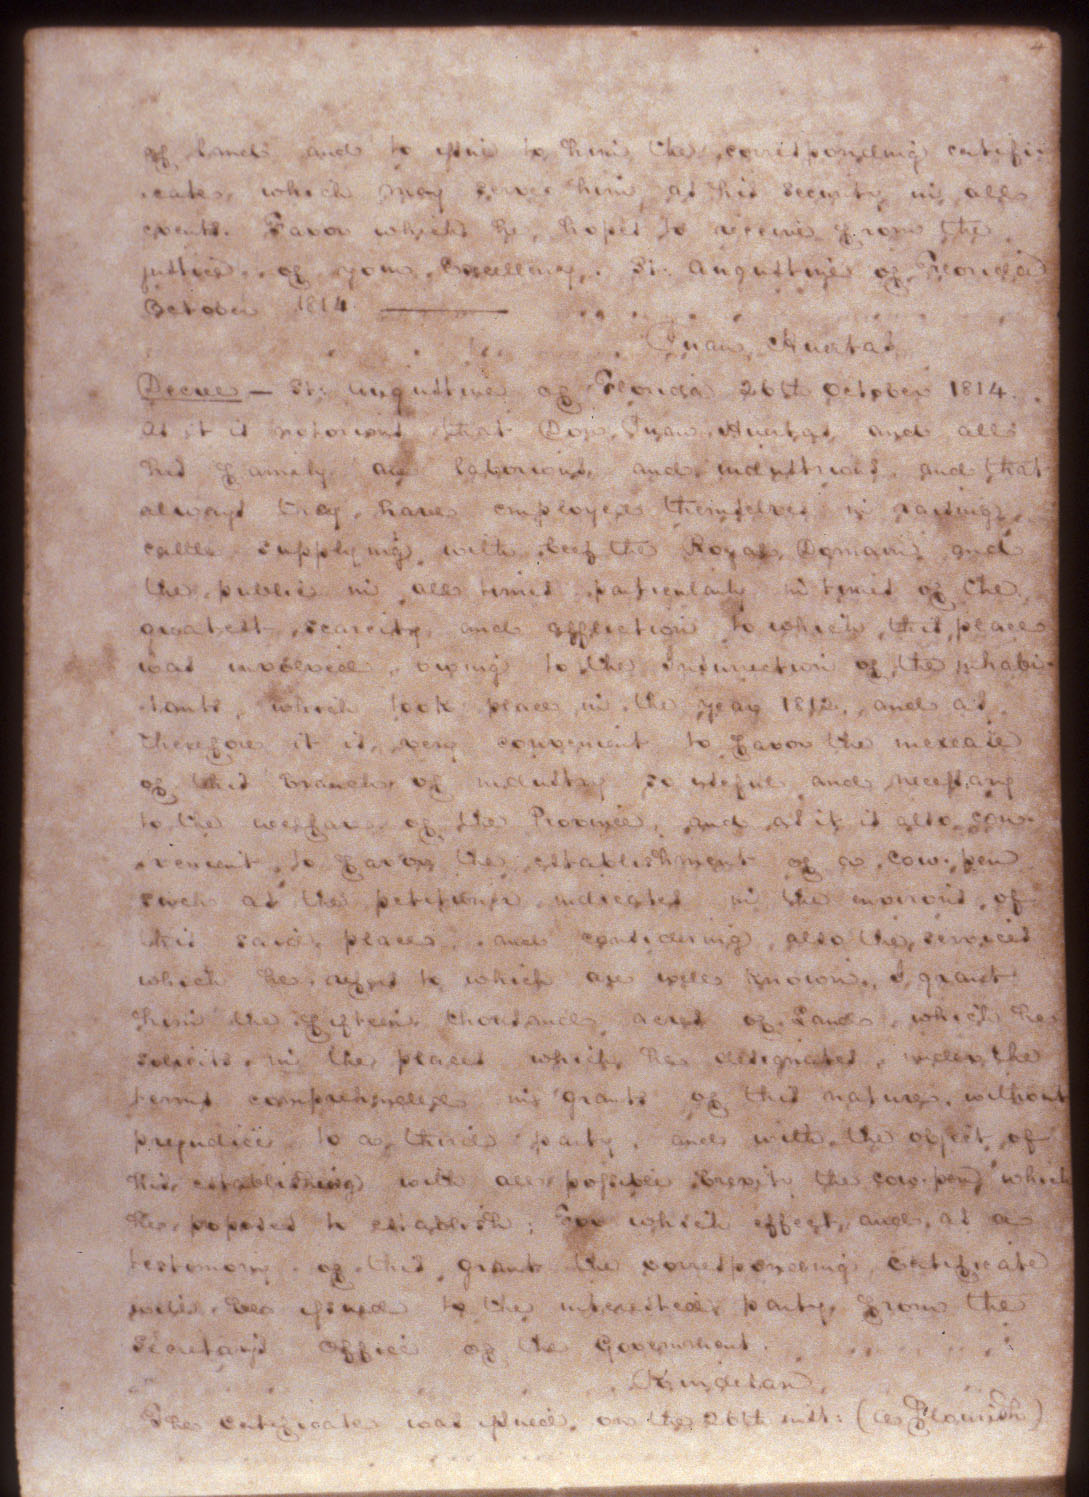 4
of land and to issue to him the corresponding certifi-
-cate, which may serve him as his security in all
events. Favor which he hopes to receive from the
justice of your Excellency. St. Augustine of Florida
October 1814.
Juan Huertas
Decree — St. Augustine of Florida 26th October 1814.
As it is notorious that Don Juan Huertas and all
his family are laborious and industrious, and that
always they have employed themselves in raising
cattle supplying with beef the Royal Domain and
the public in all times particularly in times of the
greatest scarcity and affliction to which this place
was involved, owing to the insurrection of the inhabi-
-tants, which took place in the year 1812, and as
therefore it is very convenient to favor the increase
of this branch of industry so useful and necessary
to the welfare of the Province, and as it is also con-
-venient to favor the establishment of a cow-pen
such as the petitioner indicates in the environs of
this said place, and considering also the services
which he refers to which are well known, I grant
him the fifteen thousand acres of Land, which he
solicits in the places which he designates, under the
terms comprehended in grants of this nature, without
prejudice to a third party, and with the object of
his establishing with all possible brevity the cow-pen which
he proposes to establish: For which effect, and as a
testimony of this grant the corresponding certificate
will be issued to the interested party from the
Secretary's Office of the Government.
Kindelan
The certificate was issued on the 26th inst: (a Flourish)